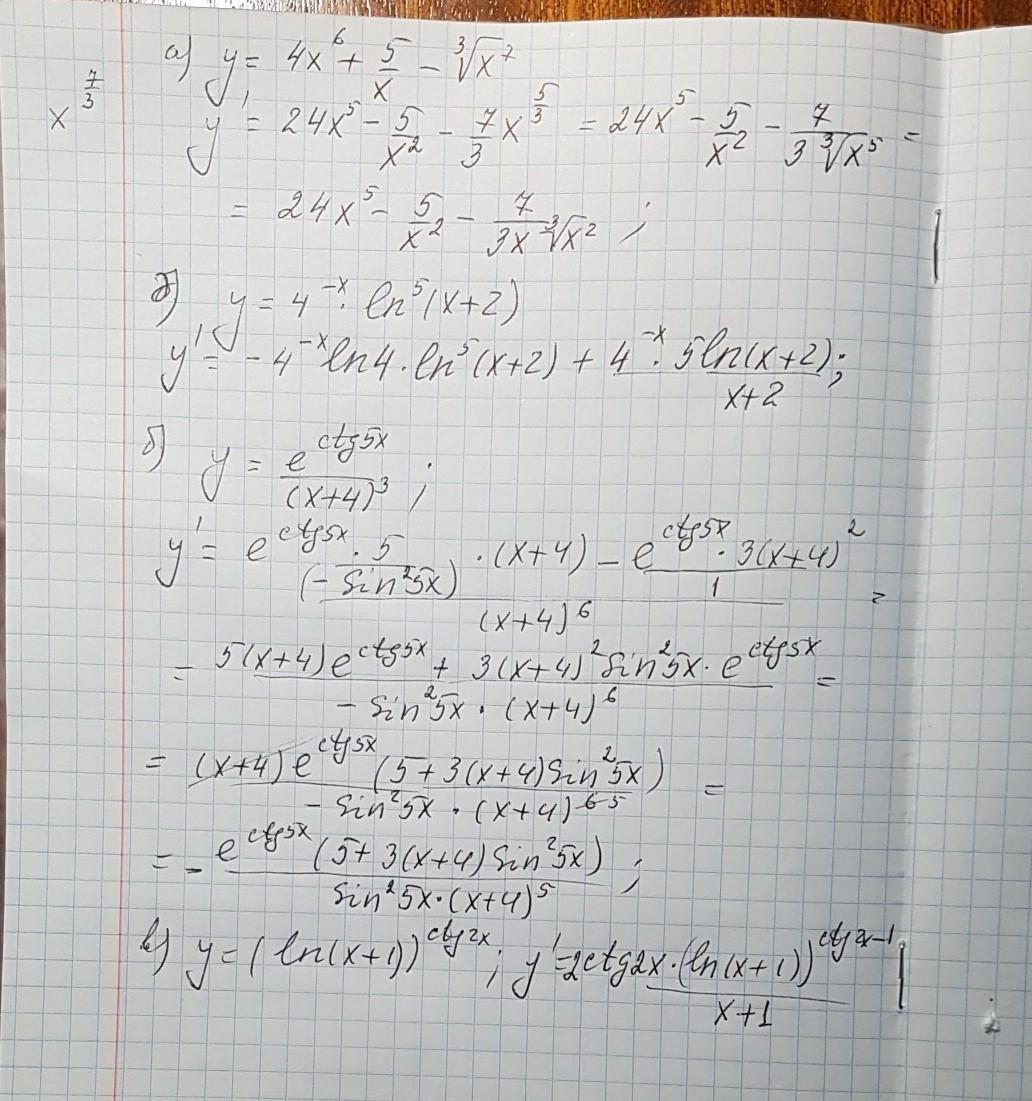 а) y = 4x^6 + 5/x - ∛x^7
x^(7/3)
y' = 24x^5 - 5/x^2 - 7/3 x^(5/3) = 24x^5 - 5/x^2 - 7/(3∛x^5) =
= 24x^5 - 5/x^2 - 7/(3x ∛x^2) ;
г) y = 4^(-x) · ln^5(x+2)
y' = -4^(-x) ln4 · ln^5(x+2) + 4^(-x) · 5ln(x+2)/(x+2);
б) y = e^(ctg5x)/(x+4)^3 ;
y' = (e^(ctg5x) · 5/(-sin^2 5x) · (x+4) - e^(ctg5x) · 3(x+4)^2/1)/(x+4)^6 =
= (5(x+4)e^(ctg5x) + 3(x+4)^2 sin^2 5x · e^(ctg5x))/(-sin^2 5x · (x+4)^6) =
= (x+4)e^(ctg5x) (5+3(x+4)sin^2 5x)/(-sin^2 5x · (x+4)^(6 5)) =
= - e^(ctg5x) (5+3(x+4)sin^2 5x)/(sin^2 5x · (x+4)^5) ;
в) y = (ln(x+1))^(ctg2x) ; y' = 2ctg2x · (ln(x+1))^(ctg2x-1)/(x+1)